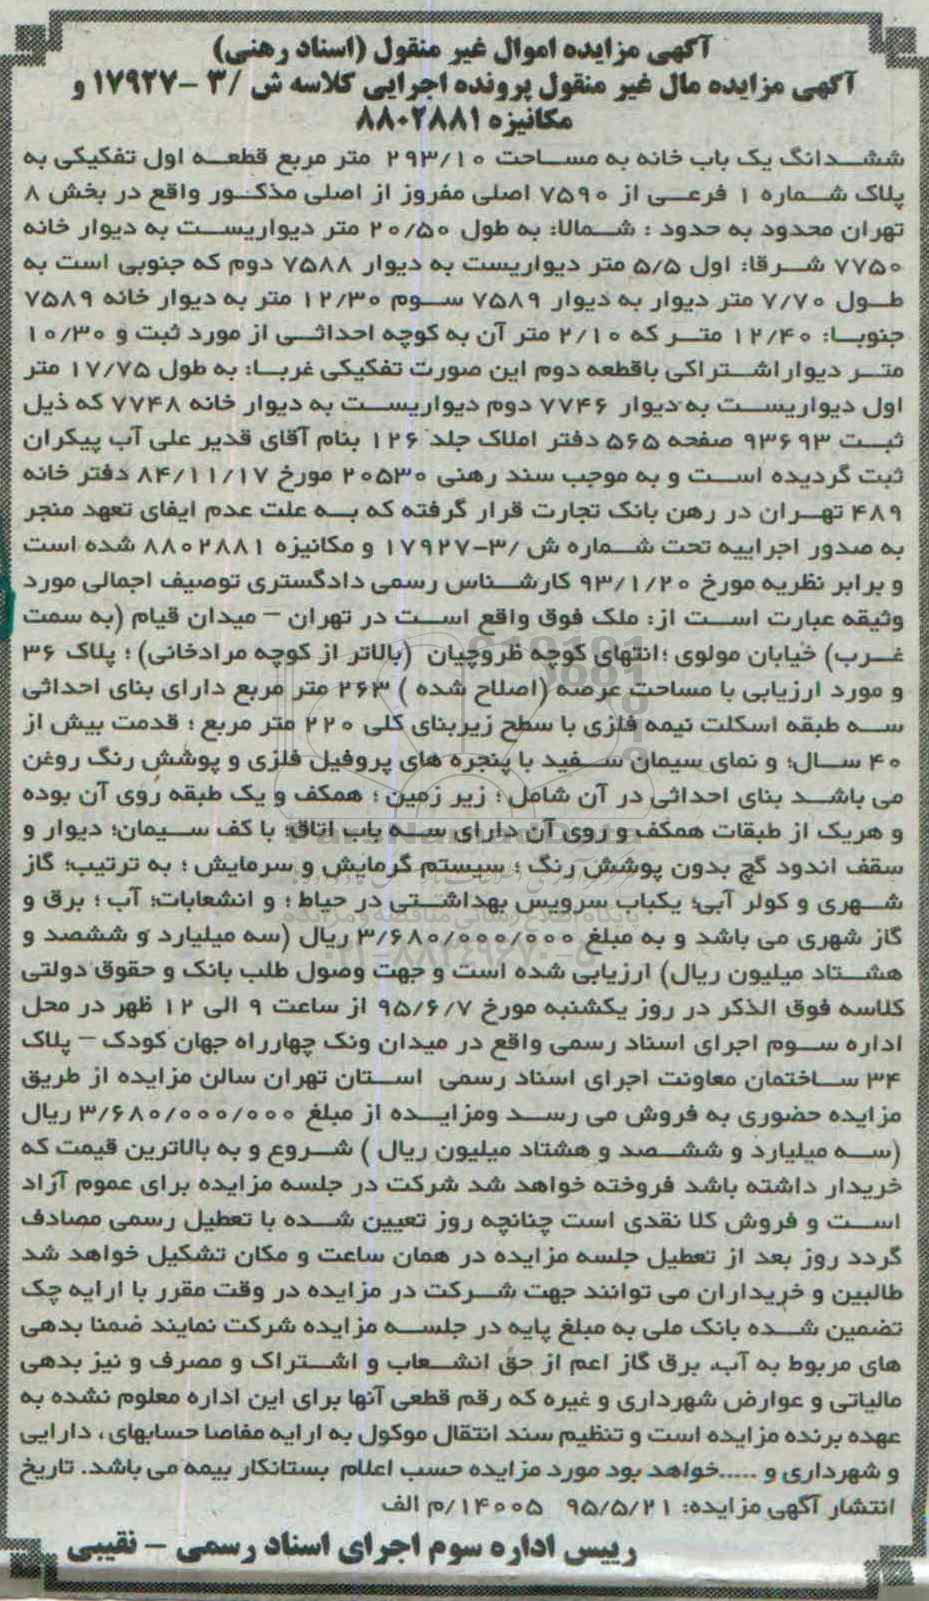 آگهی مزایده اموال غیر منقول (اسناد رهنی)
آگهی مزایده مال غیر منقول پرونده اجرایی کلاسه ش /۳ -۱۷۹۲۷ و
مکانیزه ۸۸۰۲۸۸۱
ششدانگ یک باب خانه به مساحت ۲۹۳/۱۰ متر مربع قطعه اول تفکیکی به
پلاک شماره ۱ فرعی از ۷۵۹۰ اصلی مفروز از اصلی مذکور واقع در بخش ۸
تهران محدود به حدود : شمالا: به طول ۲۰/۵۰ متر دیواریست به دیوار خانه
۷۷۵۰ شرقا: اول ۵/۵ متر دیواریست به دیوار ۷۵۸۸ دوم که جنوبی است به
طول ۷/۷۰ متر دیوار به دیوار ۷۵۸۹ سوم ۱۲/۳۰ متر به دیوار خانه ۷۵۸۹
جنوبا: ۱۲/۴۰ متر که ۲/۱۰ متر آن به کوچه احداثی از مورد ثبت و ۱۰/۳۰
متر دیوار اشتراکی باقطعه دوم این صورت تفکیکی غربا: به طول ۱۷/۷۵ متر
اول دیواریست به دیوار ۷۷۴۶ دوم دیواریست به دیوار خانه ۷۷۴۸ که ذیل
ثبت ۹۳۶۹۳ صفحه ۵۶۵ دفتر املاک جلد ۱۲۶ بنام آقای قدیر علی آب پیکران
ثبت گردیده است و به موجب سند رهنی ۲۰۵۳۰ مورخ ۸۴/۱۱/۱۷ دفتر خانه
۴۸۹ تهران در رهن بانک تجارت قرار گرفته که به علت عدم ایفای تعهد منجر
به صدور اجراییه تحت شماره ش /۳-۱۷۹۲۷ و مکانیزه ۸۸۰۲۸۸۱ شده است
و برابر نظریه مورخ ۹۳/۱/۲۰ کارشناس رسمی دادگستری توصیف اجمالی مورد
وثیقه عبارت است از: ملک فوق واقع است در تهران – میدان قیام (به سمت
غرب) خیابان مولوی ؛انتهای کوچه ظروچیان (بالاتر از کوچه مرادخانی) ؛ پلاک ۳۶
و مورد ارزیابی با مساحت عرصه (اصلاح شده ) ۲۶۳ متر مربع دارای بنای احداثی
سه طبقه اسکلت نیمه فلزی با سطح زیربنای کلی ۲۲۰ متر مربع ؛ قدمت بیش از
۴۰ سال؛ و نمای سیمان سفید با پنجره های پروفیل فلزی و پوشش رنگ روغن
می باشد بنای احداثی در آن شامل ؛ زیر زمین ؛ همکف و یک طبقه روی آن بوده
و هریک از طبقات همکف و روی آن دارای سه باب اتاق؛ با کف سیمان؛ دیوار و
سقف اندود گچ بدون پوشش رنگ ؛ سیستم گرمایش و سرمایش ؛ به ترتیب؛ گاز
شهری و کولر آبی؛ یکباب سرویس بهداشتی در حیاط ؛ و انشعابات؛ آب ؛ برق و
گاز شهری می باشد و به مبلغ ۳/۶۸۰/۰۰۰/۰۰۰ ریال (سه میلیارد و ششصد و
هشتاد میلیون ریال) ارزیابی شده است و جهت وصول طلب بانک و حقوق دولتی
کلاسه فوق الذکر در روز یکشنبه مورخ ۹۵/۶/۷ از ساعت ۹ الی ۱۲ ظهر در محل
اداره سوم اجرای اسناد رسمی واقع در میدان ونک چهارراه جهان کودک – پلاک
۳۴ ساختمان معاونت اجرای اسناد رسمی استان تهران سالن مزایده از طریق
مزایده حضوری به فروش می رسد ومزایده از مبلغ ۳/۶۸۰/۰۰۰/۰۰۰ ریال
(سه میلیارد و ششصد و هشتاد میلیون ریال ) شروع و به بالاترین قیمت که
خریدار داشته باشد فروخته خواهد شد شرکت در جلسه مزایده برای عموم آزاد
است و فروش کلا نقدی است چنانچه روز تعیین شده با تعطیل رسمی مصادف
گردد روز بعد از تعطیل جلسه مزایده در همان ساعت و مکان تشکیل خواهد شد
طالبین و خریداران می توانند جهت شرکت در مزایده در وقت مقرر با ارایه چک
تضمین شده بانک ملی به مبلغ پایه در جلسه مزایده شرکت نمایند ضمنا بدهی
های مربوط به آب، برق گاز اعم از حق انشعاب و اشتراک و مصرف و نیز بدهی
مالیاتی و عوارض شهرداری و غیره که رقم قطعی آنها برای این اداره معلوم نشده به
عهده برنده مزایده است و تنظیم سند انتقال موکول به ارایه مفاصا حسابهای ، دارایی
و شهرداری و .....خواهد بود مورد مزایده حسب اعلام بستانکار بیمه می باشد. تاریخ
انتشار آگهی مزایده: ۹۵/۵/۲۱ ۱۴۰۰۵/م الف
رییس اداره سوم اجرای اسناد رسمی – نقیبی